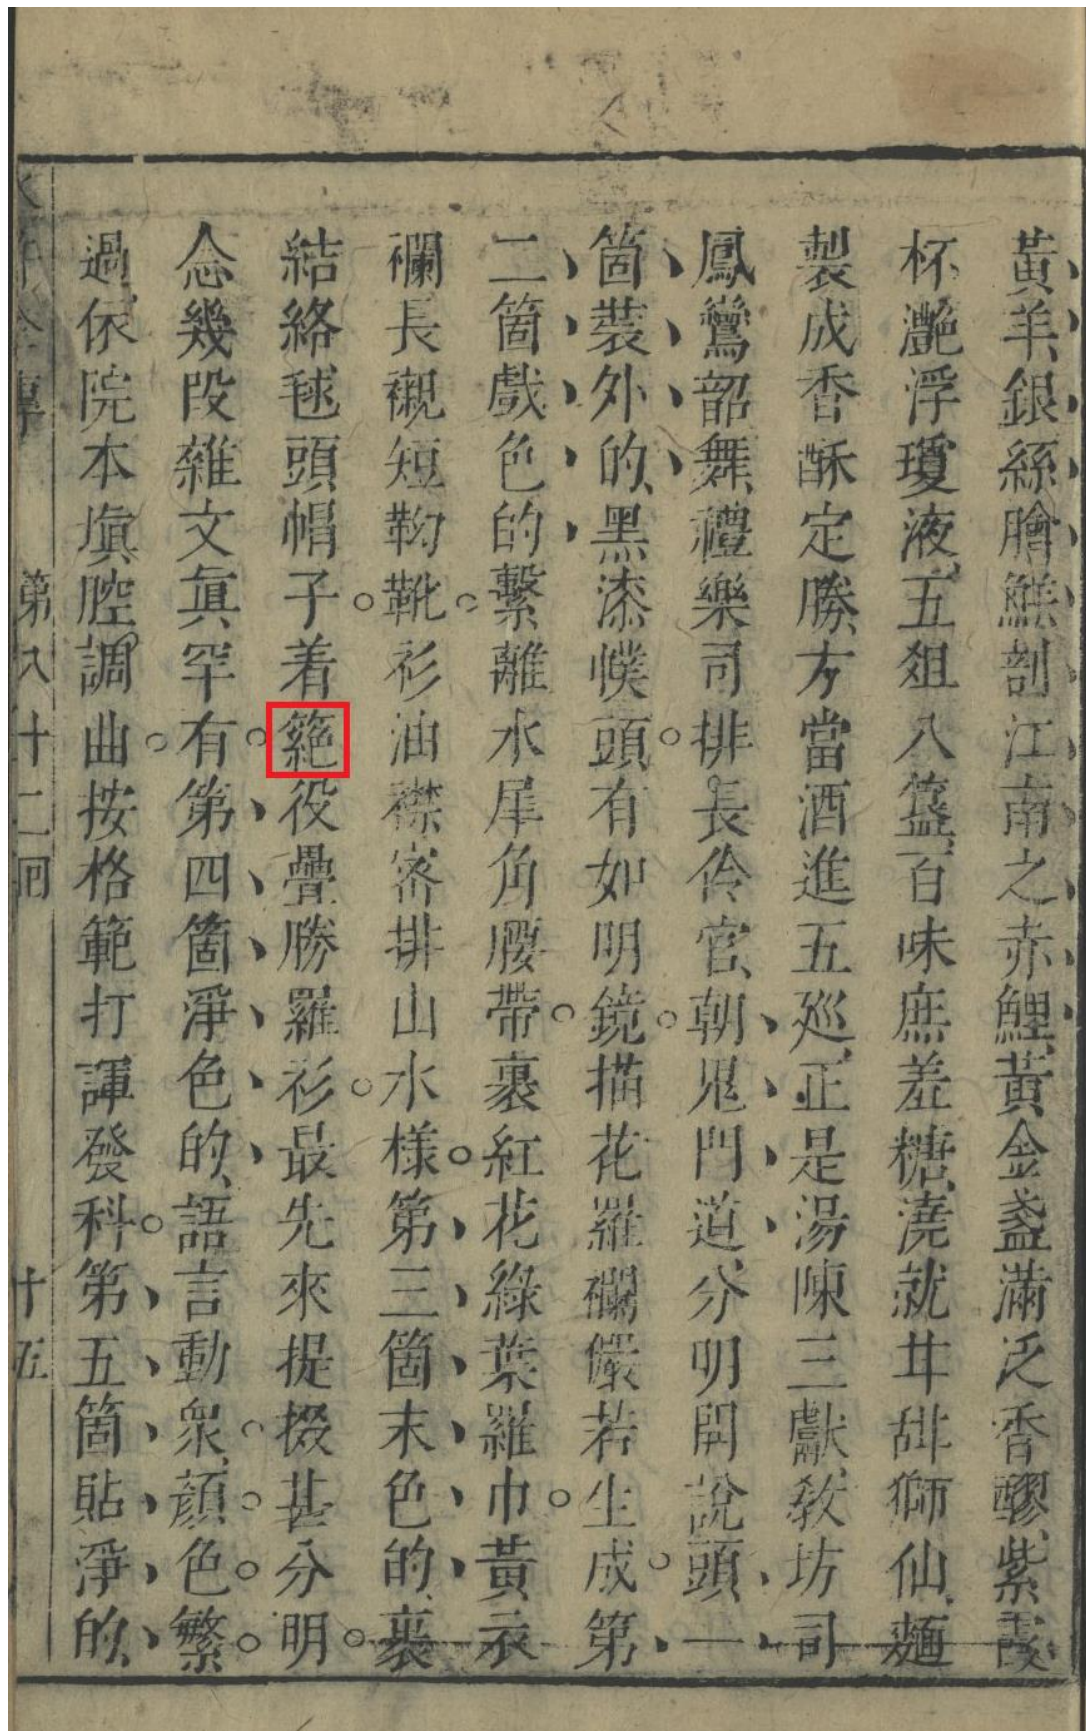 黃羊、銀絲膾鮮剖江南之赤鯉、黃金盞滿泛香醪、紫霞
杯灧浮瓊液、五俎八簋、百味庶羞、糖澆就甘甜獅仙、麵
製成香酥定勝、方當酒進五廵、正是湯陳三獻、敎坊司
鳳鸞韶舞、禮樂司排長伶官、朝鬼門道、分明開說、頭一
箇裝外的、黑漆幞頭有如明鏡描花羅襴儼若生成第
二箇戲色的繫離水犀角腰帶裹紅花綠葉羅巾黃衣
襴長襯短靿靴衫油襟密排山水樣第三箇末色的、裹
結絡毬頭帽子着䈅役疊勝羅衫最先來提掇甚分明
念幾段雜文眞罕有第四箇淨色的、語言動衆、顔色繁
過、依院本塡腔調曲按格範打諢發科第五箇貼淨的、
第八十二囘
十五